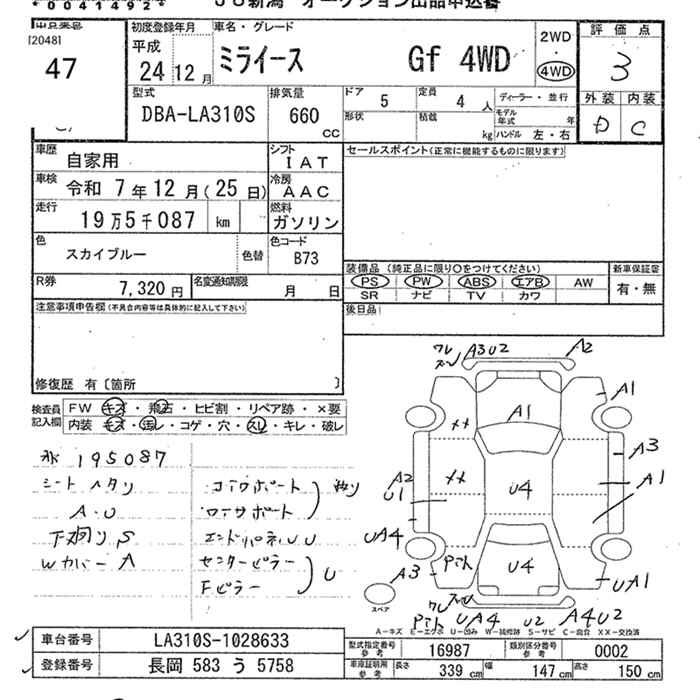 * 0 0 4 1 4 9 2 *
JU新潟 オークション出品申込書
[2048]
47
初度登録年月
平成
24年12月
車名・グレード
ミライース Gf 4WD
2WD
・
4WD
評価点
3
外装 内装
D C
型式
DBA-LA310S
排気量
660
CC
ドア 5
定員 4人
ディーラー・並行
形状
積載 kg
モデル年式 年
ハンドル 左・右
車歴 自家用
シフト IAT
セールスポイント(正常に機能するものに限ります)
車検 令和 7年12月(25日)
冷房 AAC
走行 19万5千087 km
燃料 ガソリン
色 スカイブルー
色替
色コード B73
装備品(純正品に限り〇をつけてください)
新車保証書
PS PW ABS エアB AW
SR ナビ TV カワ
有・無
R券 7,320円
名変通知期限 月 日
後日品
注意事項申告欄(不具合内容等は具体的に記入して下さい)
修復歴 有〔箇所 〕
検査員記入欄
FW キズ・飛石・ヒビ割・リペア跡・×要
内装 キズ・汚レ・コゲ・穴・スレ・キレ・破レ
195087
シートヘタリ
A・U
下廻りS
Wカバー A
コアサポート
ロアサポート
エンドパネルUU
センターピラー
Fピラー
U
ワレ
A3U2
A2
A1
A1
A3
A1
A2
U1
U4
UA4
U4
A3
UA1
スペア
UA4
U2
A4U2
A-キズ E-エクボ U-凹み W-補修跡 S-サビ C-腐食 XX-交換済
車台番号 LA310S-1028633
登録番号 長岡 583 う 5758
型式指定番号 参考 16987
類別区分番号 参考 0002
車庫証明用 参考 長さ 339cm 幅 147cm 高さ 150cm